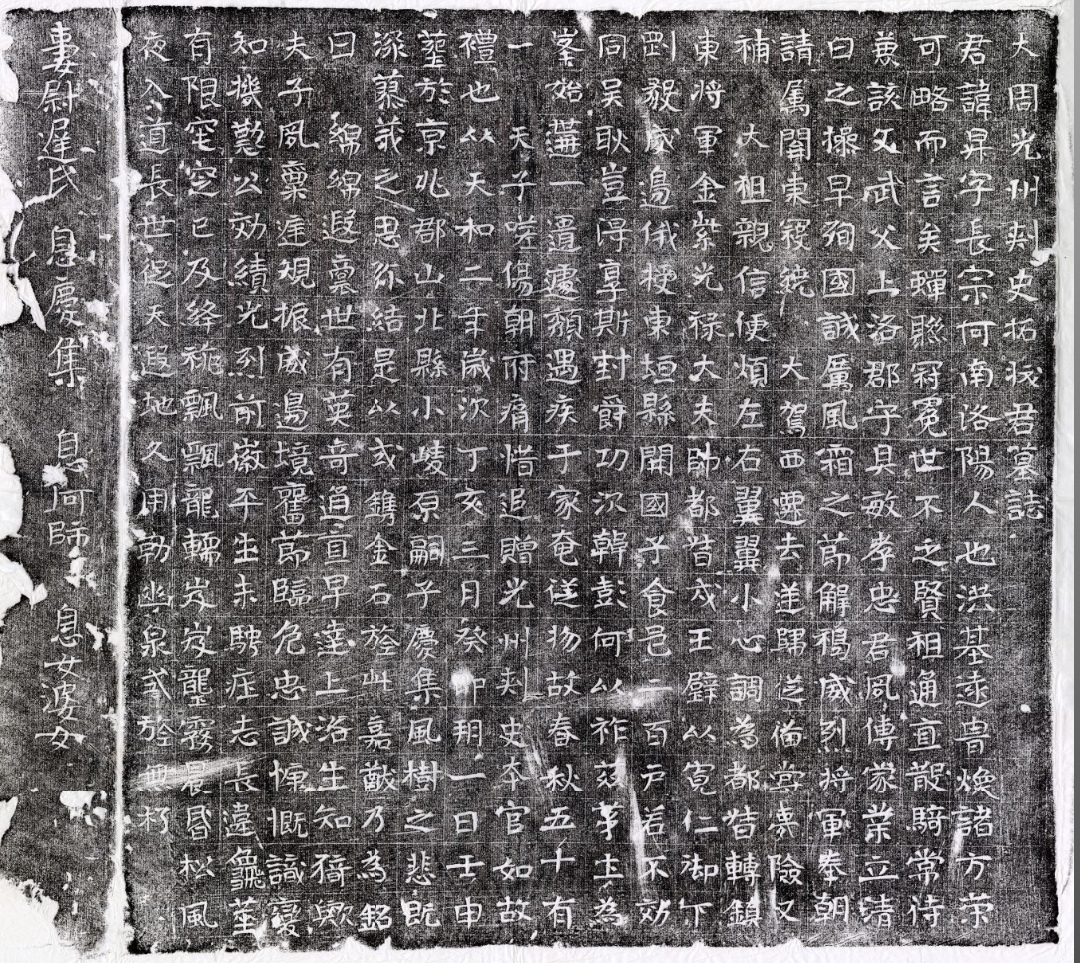 大周光州刾史拓拔君墓誌
君諱昇字長宗何南洛陽人也洪基遠胄煥諸方䇿
可略而言矣蟬聮冠冕世不乏賢祖通直散騎常侍
兼該文武父上洛郡守具敏孝忠君夙傳家業立清
白之操早殉國誠厲風霜之節解褐威烈將軍奉朝
請属關東㓂繞　大駕西遷去逆歸從備嘗夷險又
補　大祖親信便煩左右翼翼小心調為都督轉鎮
東將軍金紫光祿大夫帥都督戍王壁以寬仁御下
㓻毅威邊俄授東垣縣開國子食邑二百戶若不効
同吳耿豈得享斯封爵功次韓彭何以祚茲茅土為
峯始遘一遭遽頹遇疾于家奄從物故春秋五十有
一　天子嗟傷朝府痛惜追贈光州刾史本官如故
禮也以天和二年歲次丁亥三月癸卯朔一日壬申
塟於京兆郡山北縣小崚原嗣子慶集風樹之悲既
深蓼莪之思弥結是以或鐫金石旌此嘉猷乃為銘
曰　綿綿遐裔世有英奇道亘早達上洛生知猗歟
夫子夙稟達規振威邊境奮節臨危忠誠慷慨識變
知機懃公効績光烈前徽平生未騁庄志長違彞塟
有限窀穸已及絳旐飄飄龍轜岌岌壟霧晨昬松風
夜入道長世促天遐地久用勒幽泉式旌無朽
妻尉遲氏　息慶集　息阿師　息女婆女